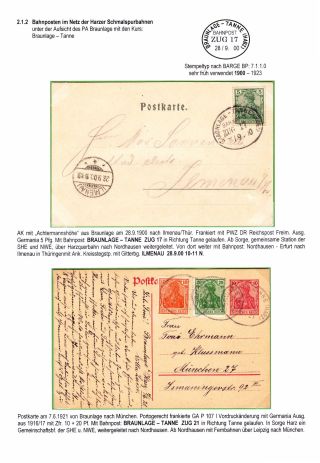 2.1.2 Bahnposten im Netz der Harzer Schmalspurbahnen
unter der Aufsicht des PA Braunlage mit den Kurs:
Braunlage – Tanne
BRAUNLAGE - TANNE (HARZ)
BAHNPOST
ZUG 17
28 / 9. 00
Stempeltyp nach BARGE BP: 7.1.1.0
sehr früh verwendet 1900 – 1923
Postkarte.
ZUG 17
Ilmenau
ILMENAU
28.9.00
AK mit „Achtermannshöhe" aus Braunlage am 28.9.1900 nach Ilmenau/Thür. Frankiert mit PWZ DR Reichspost Freim. Ausg.
Germania 5 Pfg. Mit Bahnpost: BRAUNLAGE – TANNE ZUG 17 in Richtung Tanne gelaufen. Ab Sorge, gemeinsame Station der
SHE und NWE, über Harzquerbahn nach Nordhausen weitergeleitet. Von dort weiter mit Bahnpost: Nordhausen - Erfurt nach
Ilmenau in Thüringen mit Ank. Kreisstegstp. mit Gitterbg. ILMENAU 28.9.00 10-11 N.
Postkarte
Frau Ehrmann
geb. Klussmann
München 27
Postkarte am 7.6.1921 von Braunlage nach München. Portogerecht frankierte GA P 107 I Vordruckänderung mit Germania Ausg.
aus 1916/17 mit Zfr. 10 + 20 Pf. Mit Bahnpost: BRAUNLAGE – TANNE ZUG 21 in Richtung Tanne gelaufen. In Sorge Harz ein
Gemeinschaftsbf. der SHE u. NWE, weitergeleitet nach Nordhausen. Ab Nordhausen mit Fernbahnen über Leipzig nach München.